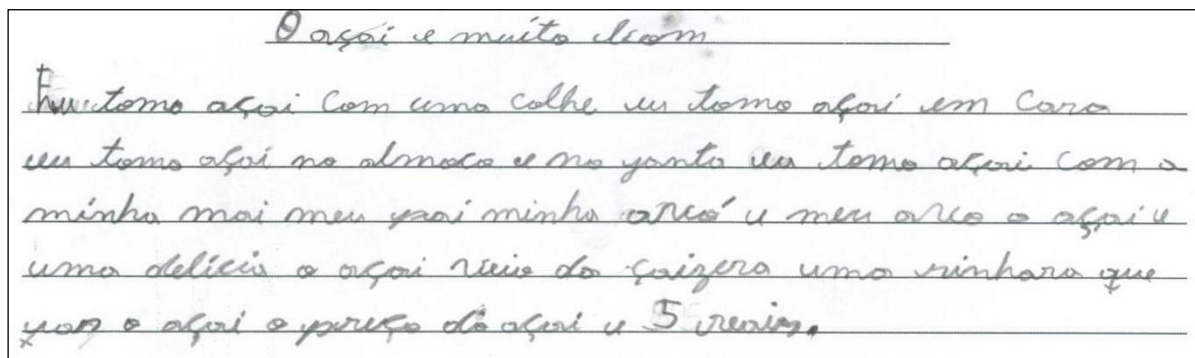 O açai e muito bom
Eu tomo açai com uma colhe eu tomo açai em cara
eu tomo açai no almoco e no yanto eu tomo açai com a
minha mai meu pai minha arcó e meu arco o açai e
uma delicia o açai veio da çaizera uma sinhara que
o açai o preço do açai e 5 reais.